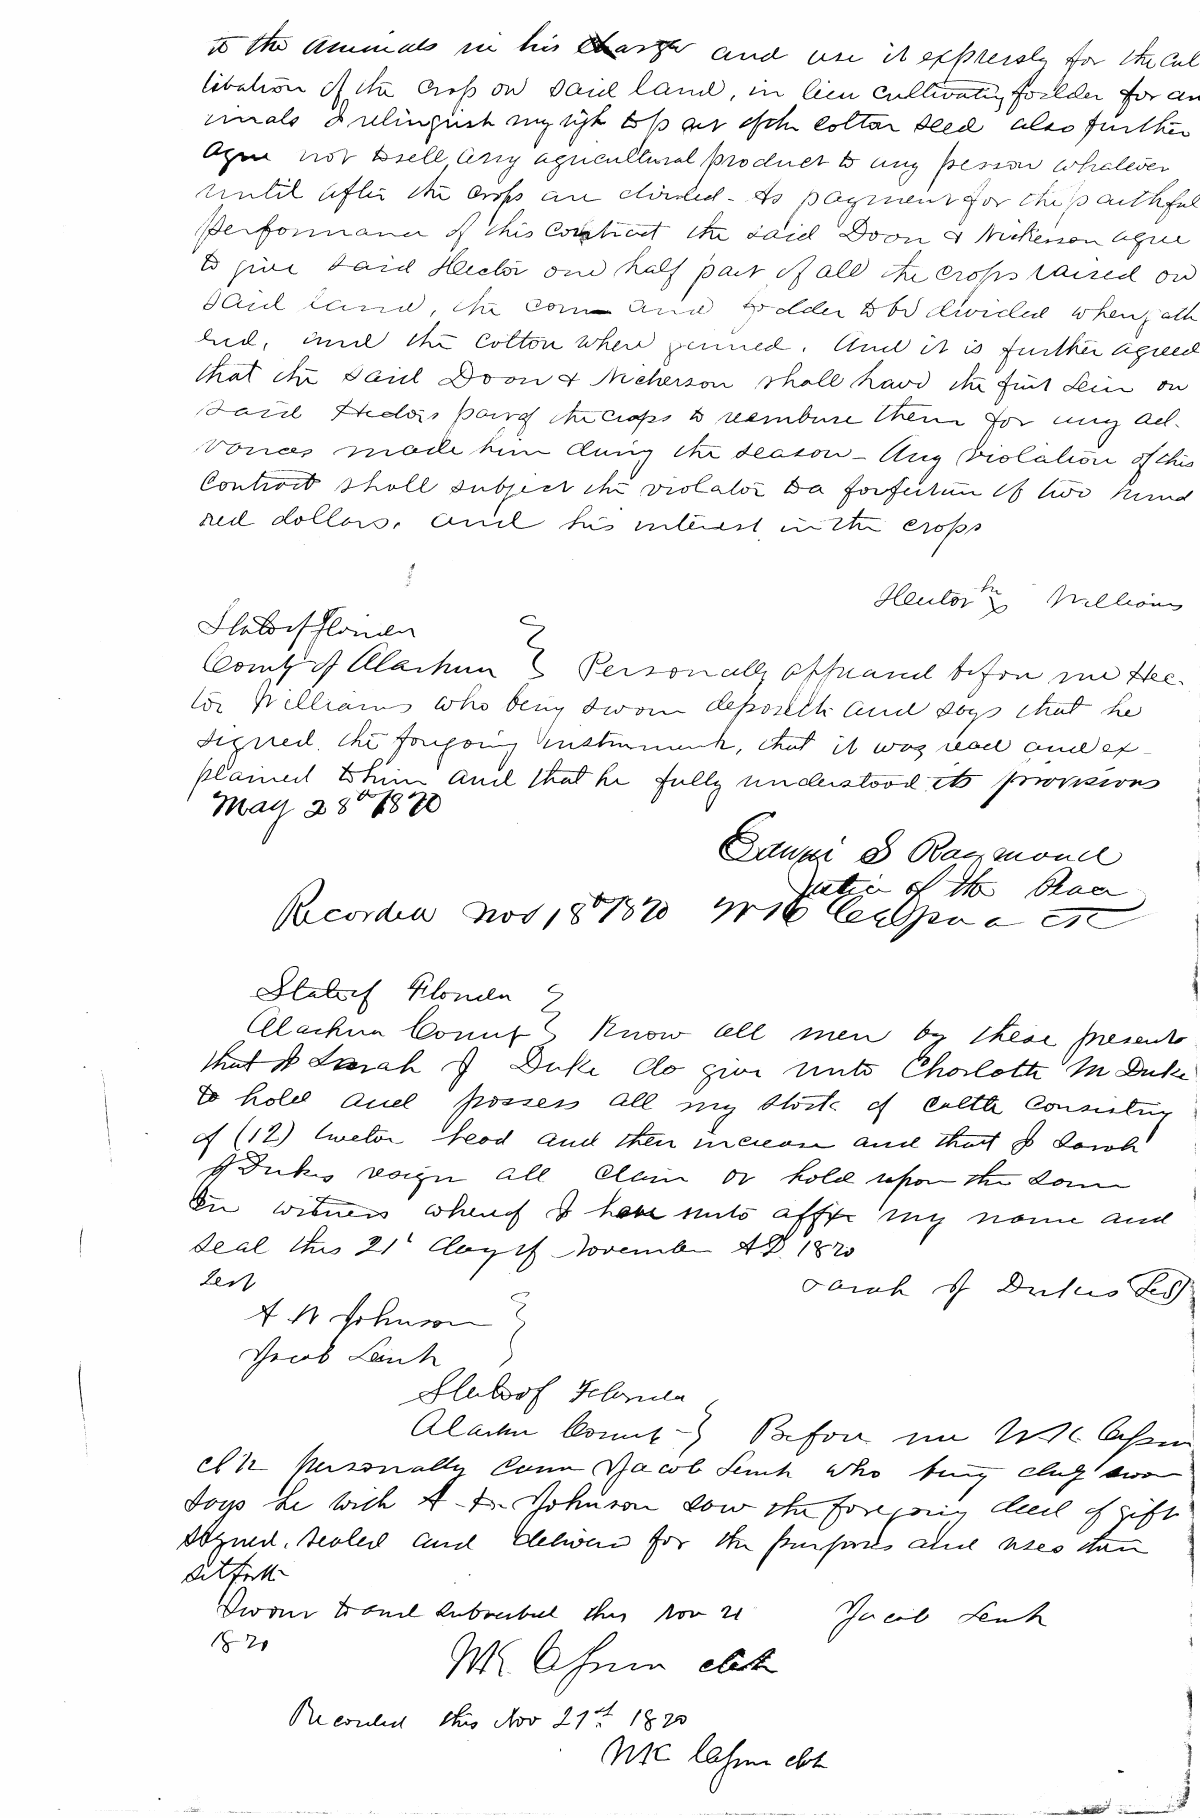 to the animals in his charge and use it expressly for the cul
tivation of the crop on said land, in lieu cultivating fodder for an
imals I relinquish my right to part of the cotton seed also further
agree not to sell any agricultural product to any person whatever
until after the crops are divided - As payment for the faithful
performance of this contract the said Doon & Nickerson agree
to give said Hector one half part of all the crops raised on
said land, the corn and fodder to be divided when gath
ered, and the cotton when ginned. And it is further agreed
that the said Doon & Nickerson shall have the first lein on
said Hectors part of the crops to reemburse them for any ad-
vances made him during the season - Any violation of this
Contract shall subject the violator to a forfeiture of two hund
red dollars. and his interest in the crops
Hector his x Williams
State of Florida }
County of Alachua } Personally appeared before me Hec-
tor Williams who being sworn deposeth and says that he
signed the foregoing instrument, that it was read and ex-
plained to him and that he fully understood its provisions
May 28th 1870
S Raymond
Justice of the Peace
Recorded Nov 18th 1870 W K Cessna clk
State of Florida }
Alachua County } Know all men by these presents
that I Sarah J Duke do give unto Charlotte M Duke
to hold and possess all my stock of cattle consisting
of (12) twelve head and their increase and that I Sarah
J Dukes resign all claim or hold upon the same
In witness whereof I have unto affix my name and
seal this 21st day of November AD. 1870
Test
Sarah J Dukes
A N Johnson }
Jacob Lenk }
State of Florida }
Alachua County - } Before me W K Cessna
clk personally came Jacob Lenk who being duly sworn
says he with A Johnson saw the foregoing deed of gift
signed, sealed and delivered for the purposes and uses therein
set forth
Sworn to and subscribed this Nov 21 Jacob Lenk
1870
WK Cessna clerk
Recorded this Nov 21st 1870
WK Cessna clk